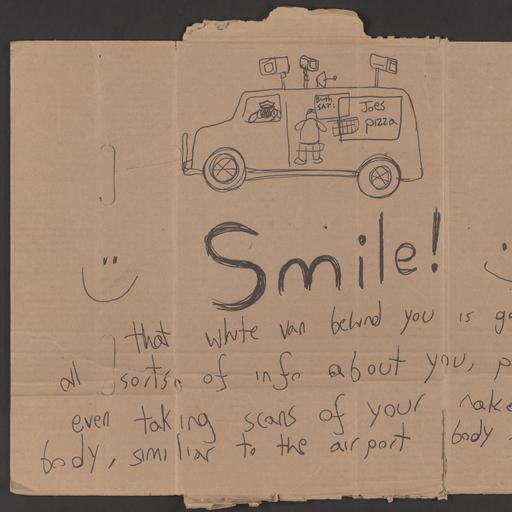 Both
SAT:
Joes
pizza
Smile!
that white van behind you is
all sorts of info about you,
even taking scans of your
body, similiar to the airport body